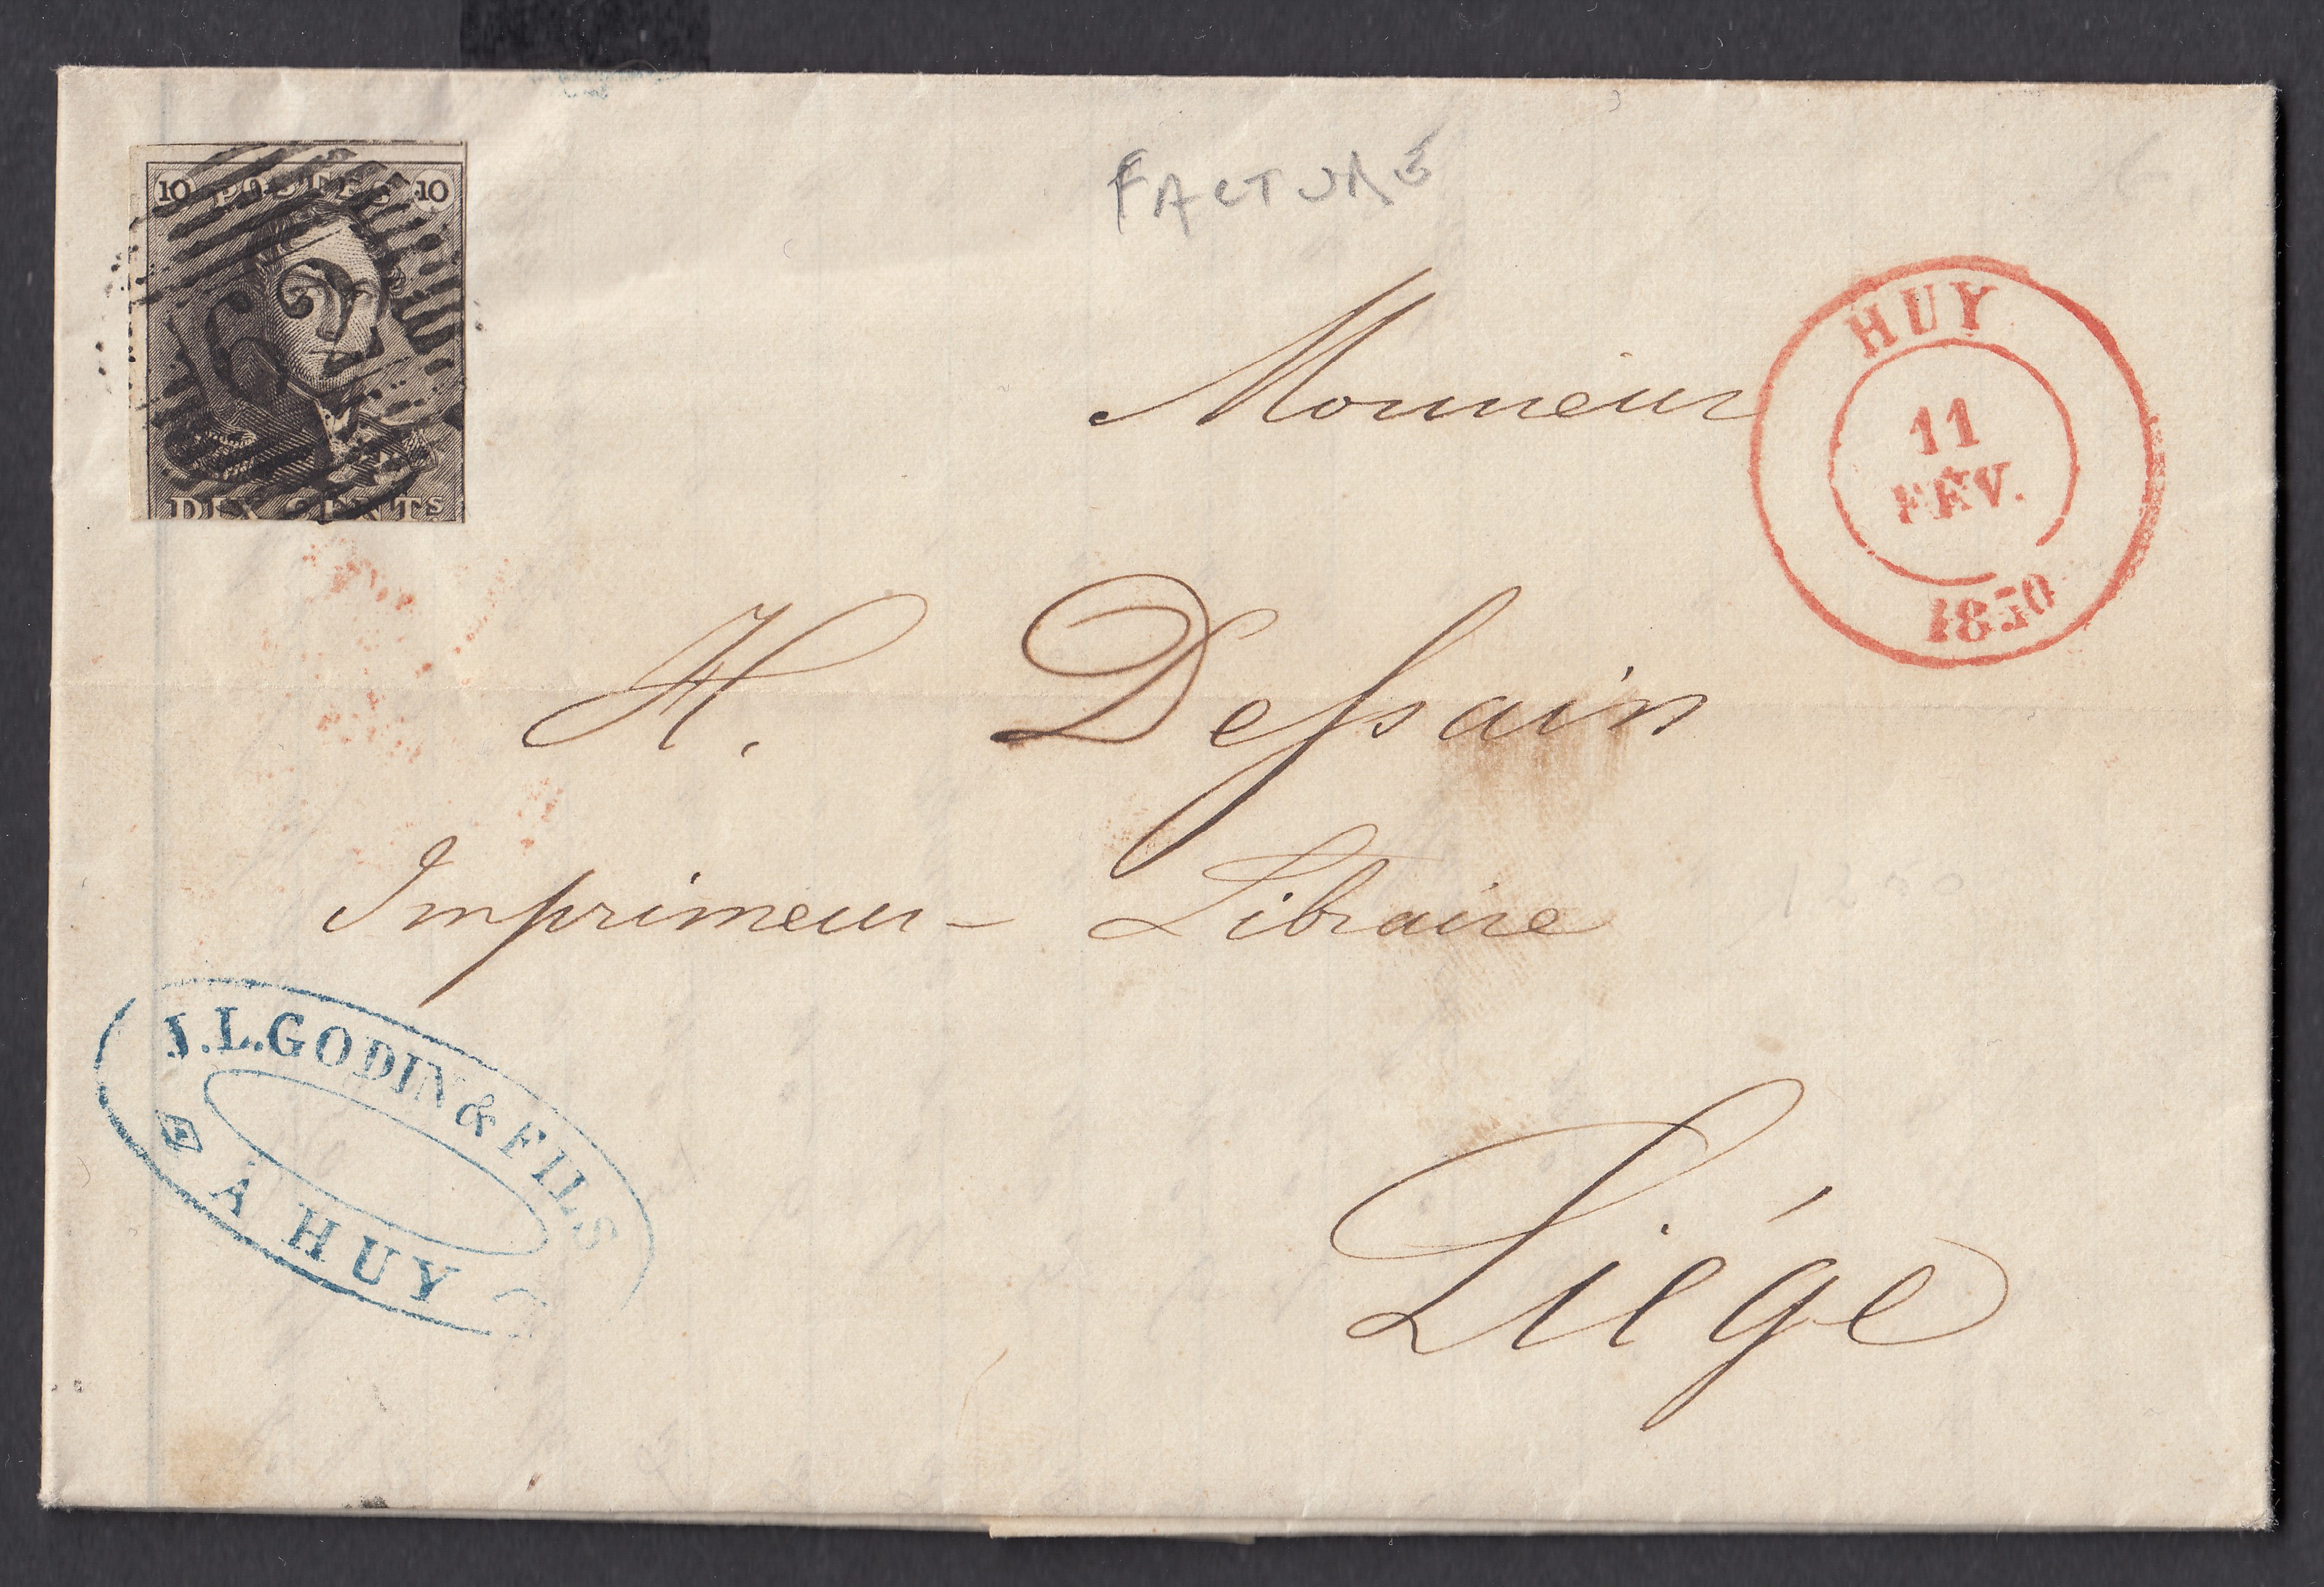 FACTURE
10 POSTES 10
62
DIX CENTS.
HUY
11
FÉV.
1850
Monsieur
H. Dessain
Imprimeur - Libraire
Liége
J.L.GODIN & FILS
À HUY